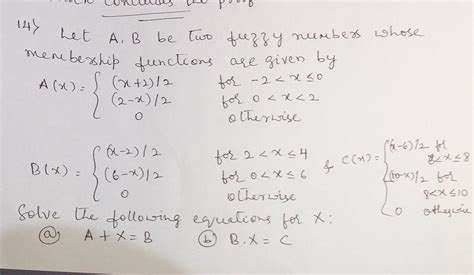 14) Let A, B be two fuzzy numbers whose
membership functions are given by
A(x) = { (x+2)/2 for -2 < x ≤ 0
(2-x)/2 for 0 < x < 2
0 otherwise
B(x) = { (x-2)/2 for 2 < x ≤ 4
(6-x)/2 for 0 < x ≤ 6
0 otherwise
& C(x) = { (x-6)/2 for
< x ≤ 8
(10-x)/2 for
8 < x ≤ 10
0 otherwise
Solve the following equations for X:
(a) A + X = B (b) B.X = C